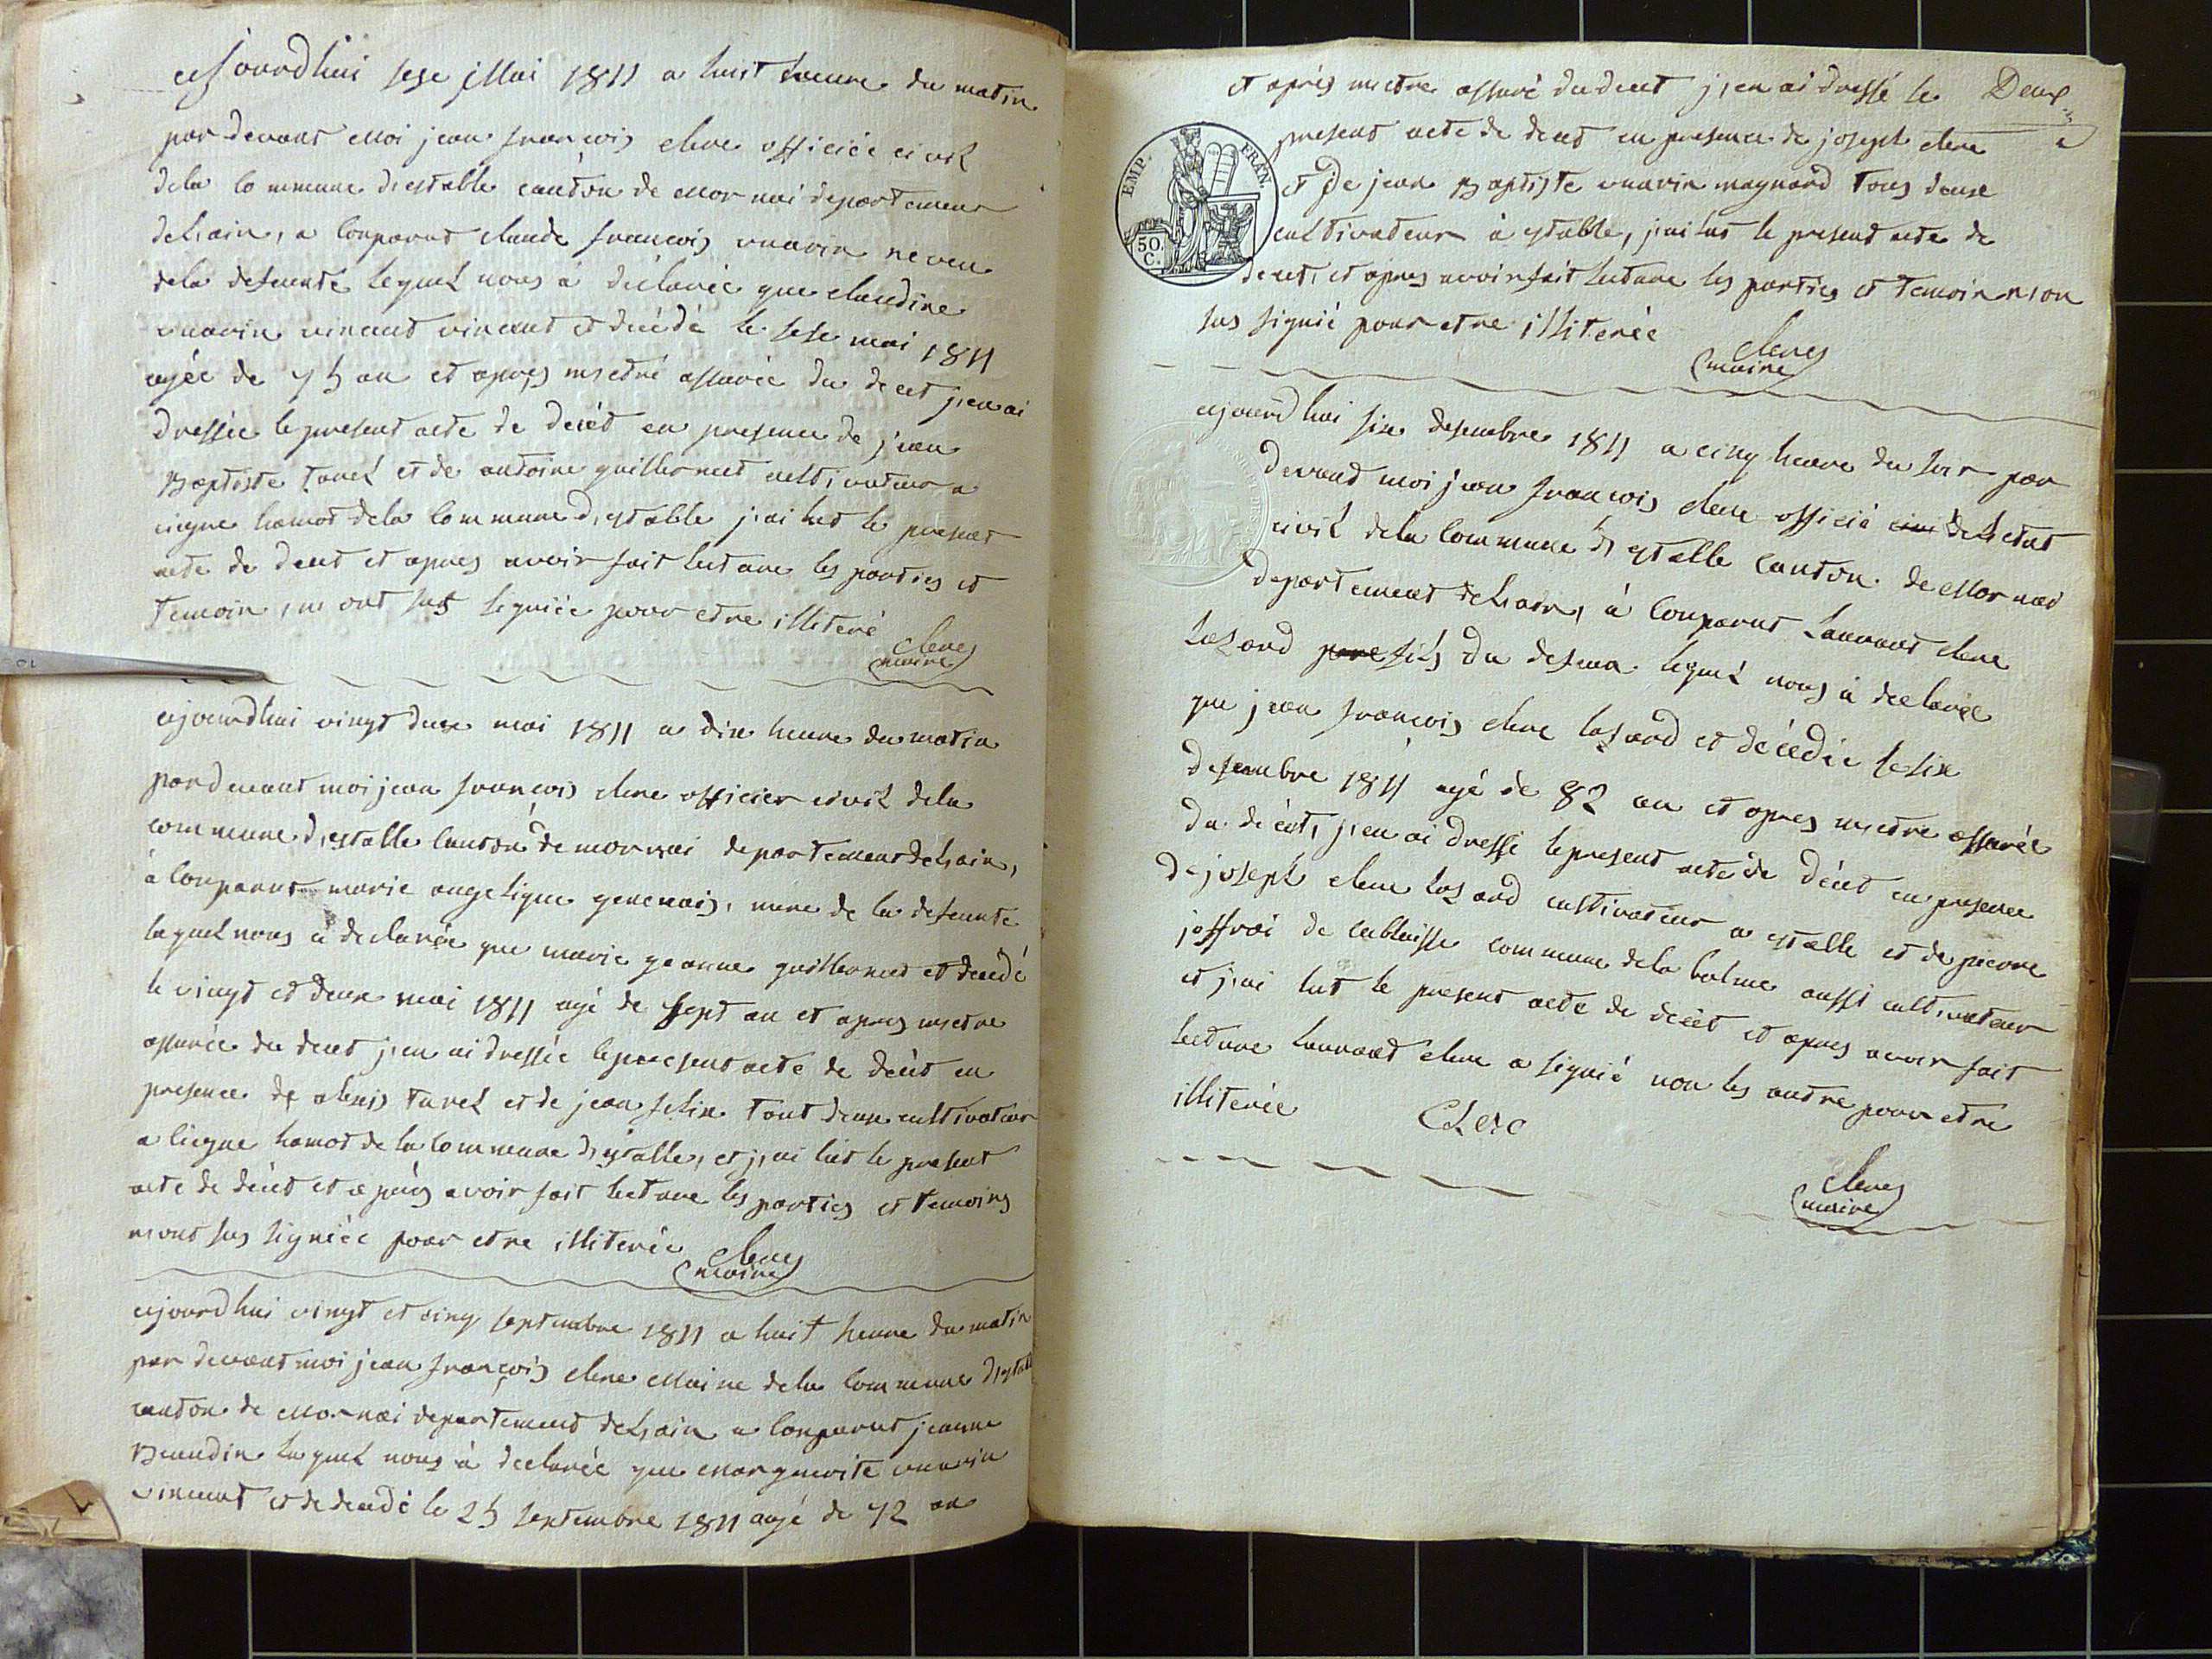 aujourdhui sese Mai 1811 a huit heure du matin
par devant Moi jean francois clerc officiée civil
dela commune d,estable canton de Mornai departement
deLain, a Comparut claude francois vuarin neveu
dela defuente lequel nous à déclarée que claudine
vuarin vincent vincent et décédé le sese mai 1811
agée de 75 an et après metre assurée du decet j,en ai
dressée le present acte de décét en presence de jean
Baptiste tavel et de antoine guillermet cultivateur a
ciegne hamot dela Commune d,estable j,ai lut le present
acte de decet et apres avoir fait lecture les parties et
temoin, n,ont sus signiée pour etre illiteré
Clerc
maire
aujourdhui vingt deux mai 1811 a dix heure du matin
pardevant moi jean francois clerc officier civil dela
commune d,estable Canton de mornai departement deLain,
à Comparut marie angelique genenais, mere de la defuente
laquel nous à declarée que marie jeanne guillermet et decédé
le vingt et deux mai 1811 agé de sept an et apres metre
assurée du decet j,en ai dressée le present acte de décét en
presence de alexis tavel et de jean felix tout deux cultivateur
a ciegne hamot de la Commune d,estable, et j,ai lut le present
acte de décét et après avoir fait lecture les parties et temoins
n,ont sus signiée pour etre illiterée
Clerc
maire
aujourdhui vingt et cinq septembre 1811 a huit heure du matin
par devant moi jean françois clerc Maire dela Commune d,estable
canton de Mornai departement deLain a Comparut jeanne
Beaudin laquel nous à declarée que Marguerite vuarin
vincent et de decedé le 25 septembre 1811 agé de 72 an
Deux
et après metre assuré du decet j,en ai dressé le
present acte de decet en presence de joseph clerc
et de jean Baptiste vuarin maynard tous deux
cultivateur à estable, j,ai lut le present acte de
decet, et apres avoir fait lecture les parties et temoin n,on
sus signié pour etre illiterée
Clerc
maire
EMP. FRAN.
50. C.
aujourdhui six desembre 1811 a cinq heure du soir par
devand moi jean francois clerc officié civi deLetat
civil dela Commune d,estable Canton de Mornai
departement deLain, à Comparut Laurant clerc
lasard pere fils du defun lequel nous à declarée
que jean francois clerc lasard et décédée le six
desembre 1811 agé de 82 an et apres metre assurée
du décét, j,en ai dressé le present acte de décét en presence
de joseph clerc lasard cultivateur a estable et de pierre
joffrai de cublaisse commune dela balme aussi cultivateur
et j,ai lut le present acte de décét et apres avoir fait
lecture Laurant clerc a signié non les autre pour etre
illiterée
CLerc
Clerc
maire